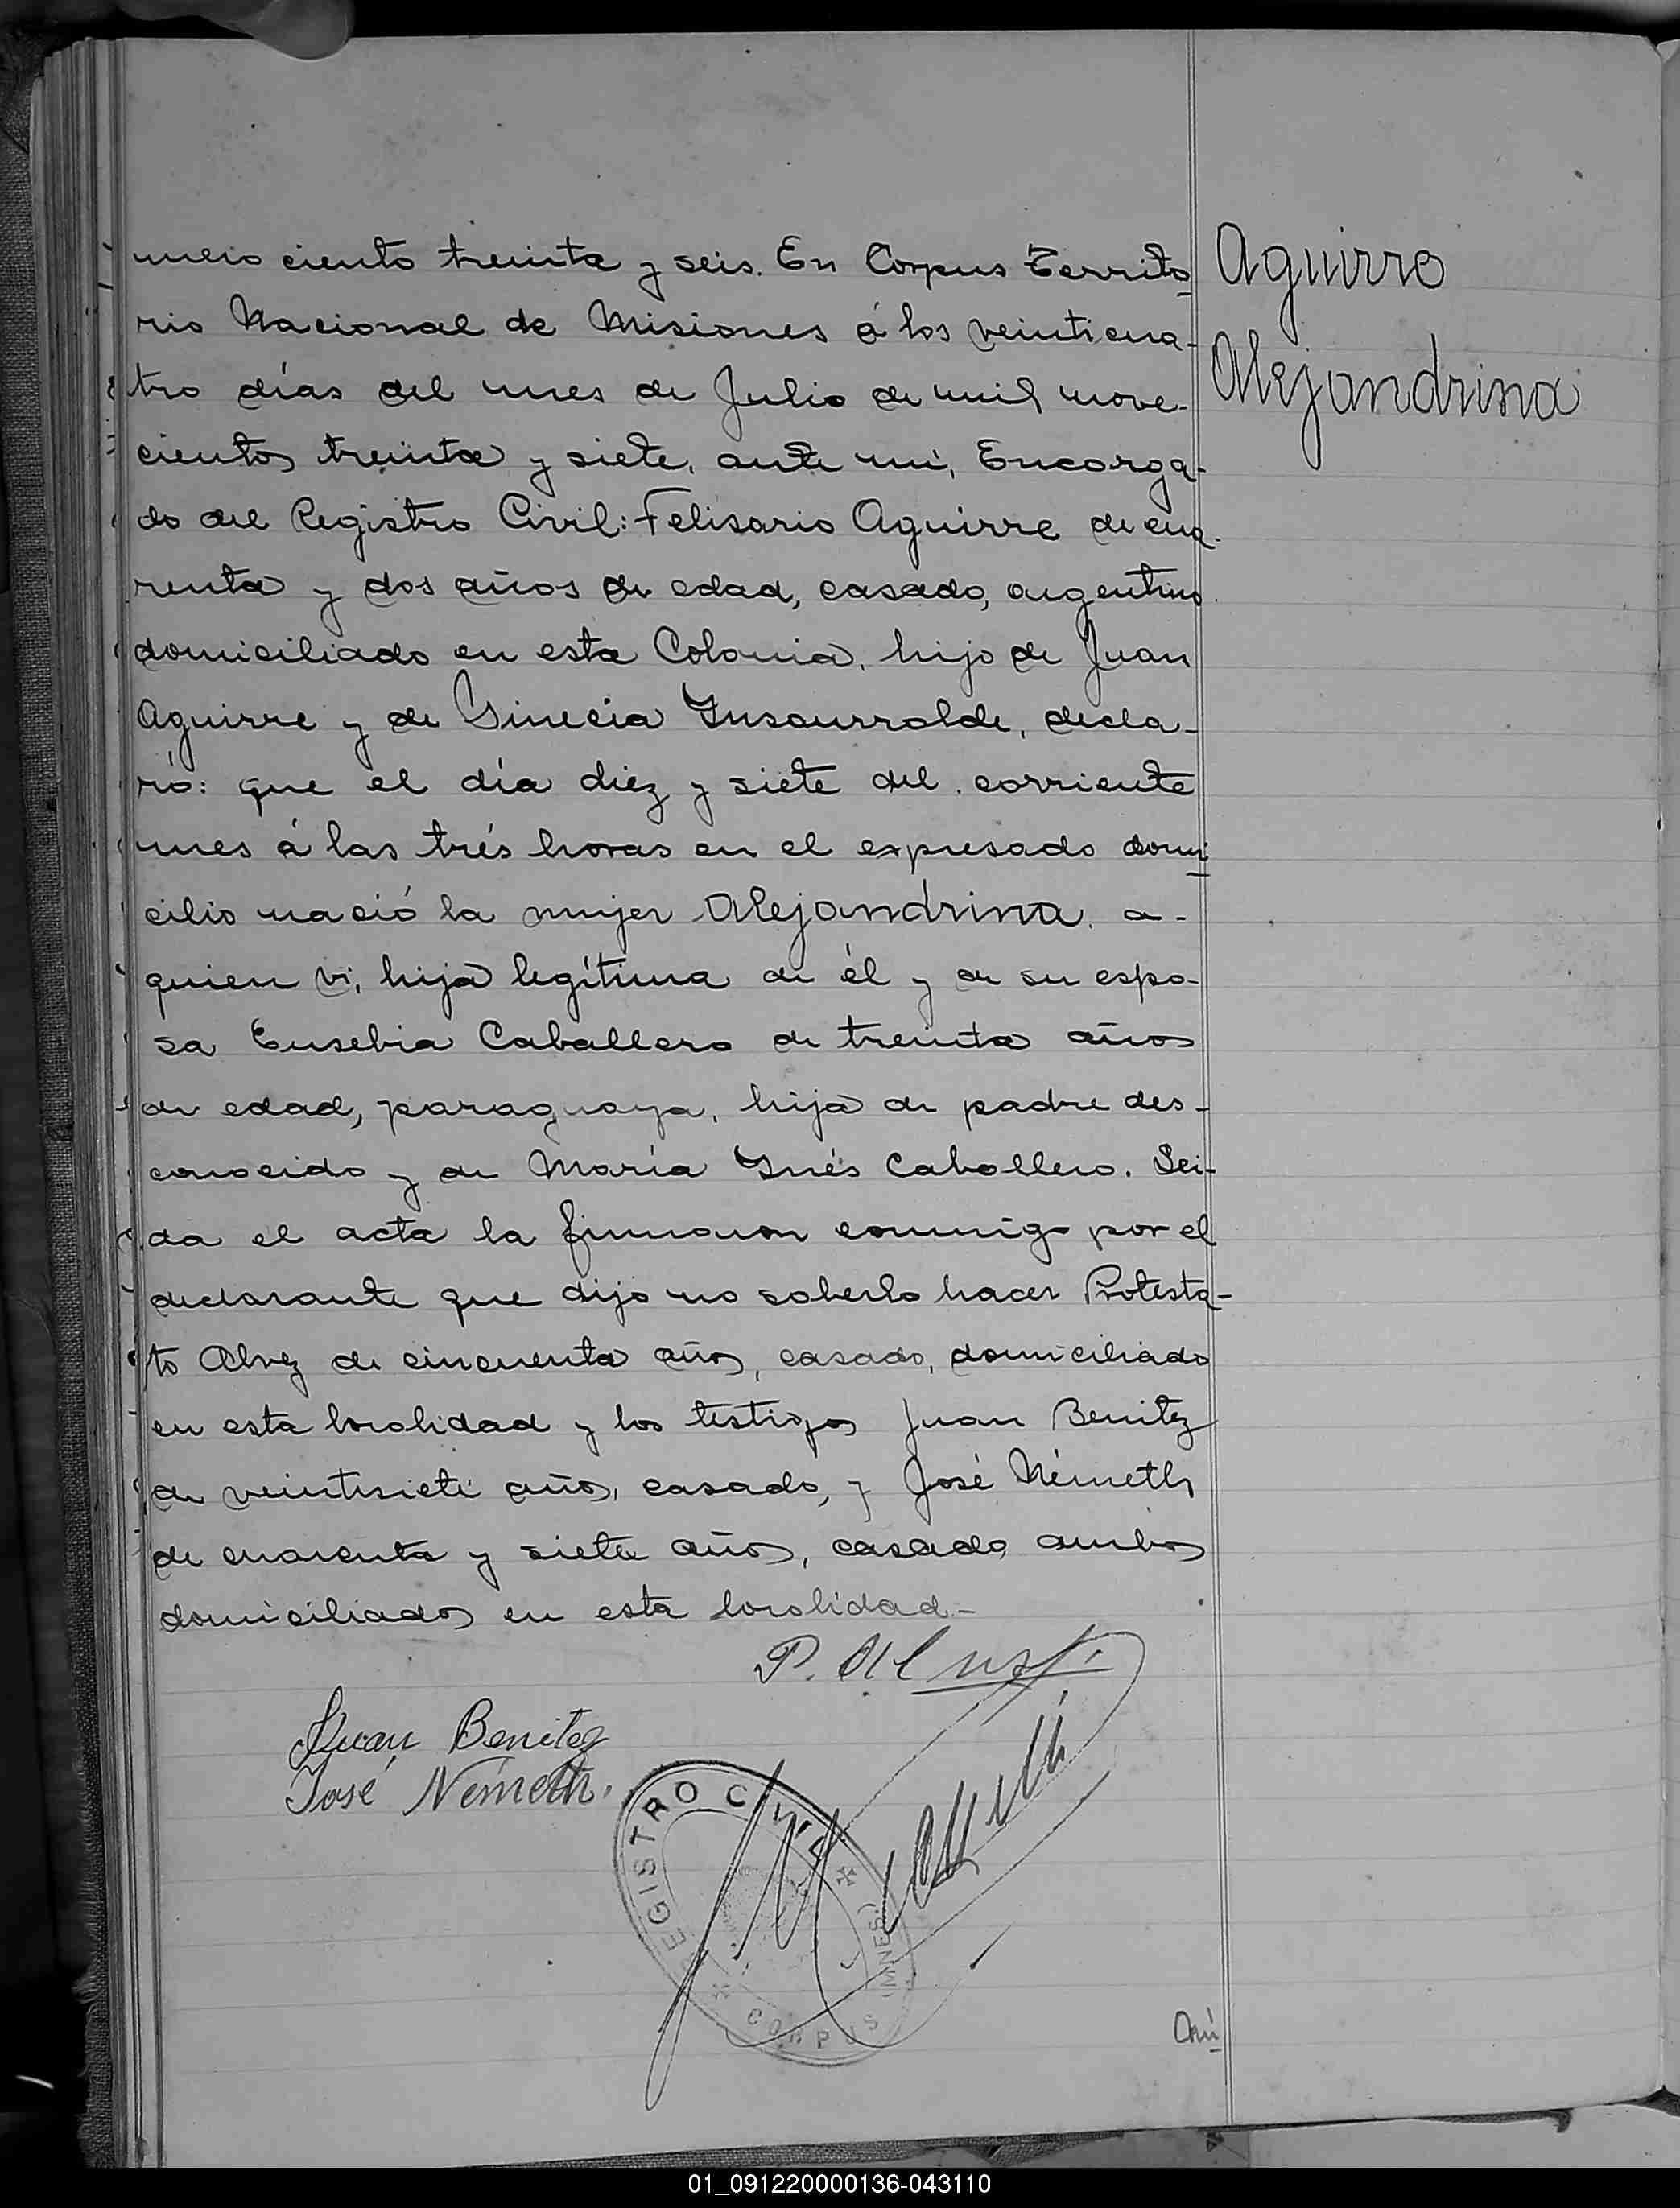 mero ciento treinta y seis. En Corpus Territo
rio Nacional de Misiones á los veinticua-
tro días del mes de Julio de mil nove-
cientos treinta y siete, ante mí, Encarga-
do del Registro Civil: Felisario Aguirre de cua-
renta y dos años de edad, casado, argentino
domiciliado en esta Colonia, hijo de Juan
Aguirre y de Sinecia Insaurralde, decla-
ró: que el día diez y siete del corriente
mes á las trés horas en el expresado domi
cilio nació la mujer Alejandrina a-
quien vi, hija legítima de él y de su espo-
sa Eusebia Caballero de treinta años
de edad, paraguaya, hija de padre des-
conocido y de María Inés Caballero. Lei-
da el acta la firmaron conmigo por el
declarante que dijo no saberlo hacer Protesta-
to Alvez de cincuenta años, casado, domiciliado
en esta localidad y los testigos Juan Benitez
de veintisiete años, casado, y José Németh
de cuarenta y siete años, casado, ambos
domiciliados en esta localidad.-
Aguirre
Alejandrina
P.
Juan Benitez
José Németh.
REGISTRO CIVIL
CORPUS (MNES.)
Nú
01_091220000136-043110